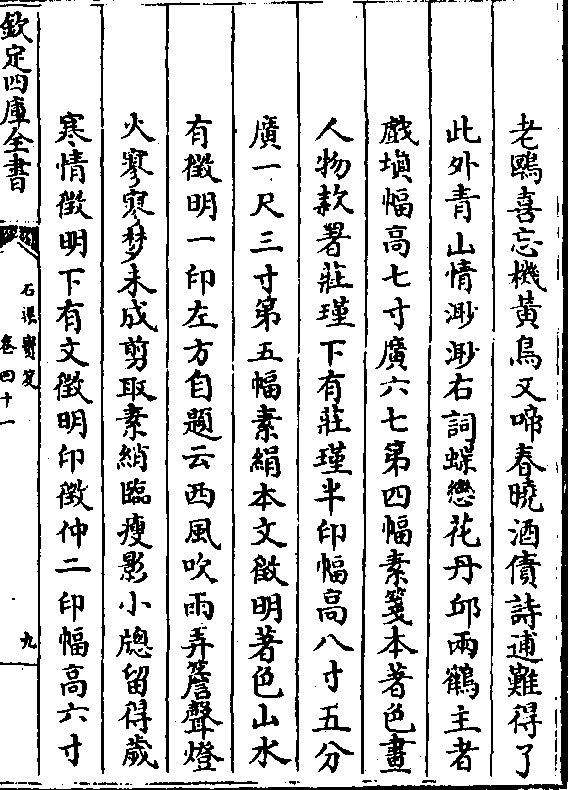 老鷗喜忘機黄鳥又啼春曉酒債詩逋難得了
此外青山情渺渺右詞蝶戀花丹邱兩鶴主者
戲填幅高七寸廣六七第四幅素箋本著色畫
人物款署莊瑾下有莊瑾半印幅高八寸五分
廣一尺三寸第五幅素絹本文徵明著色山水
有徵明一印左方自題云西風吹雨弄簷聲燈
火寥寥夢未成剪取素綃臨瘦影小牕留得歲
寒情徵明下有文徵明印徵仲二印幅高六寸
欽定四庫全書
石渠寶笈
卷四十一
九